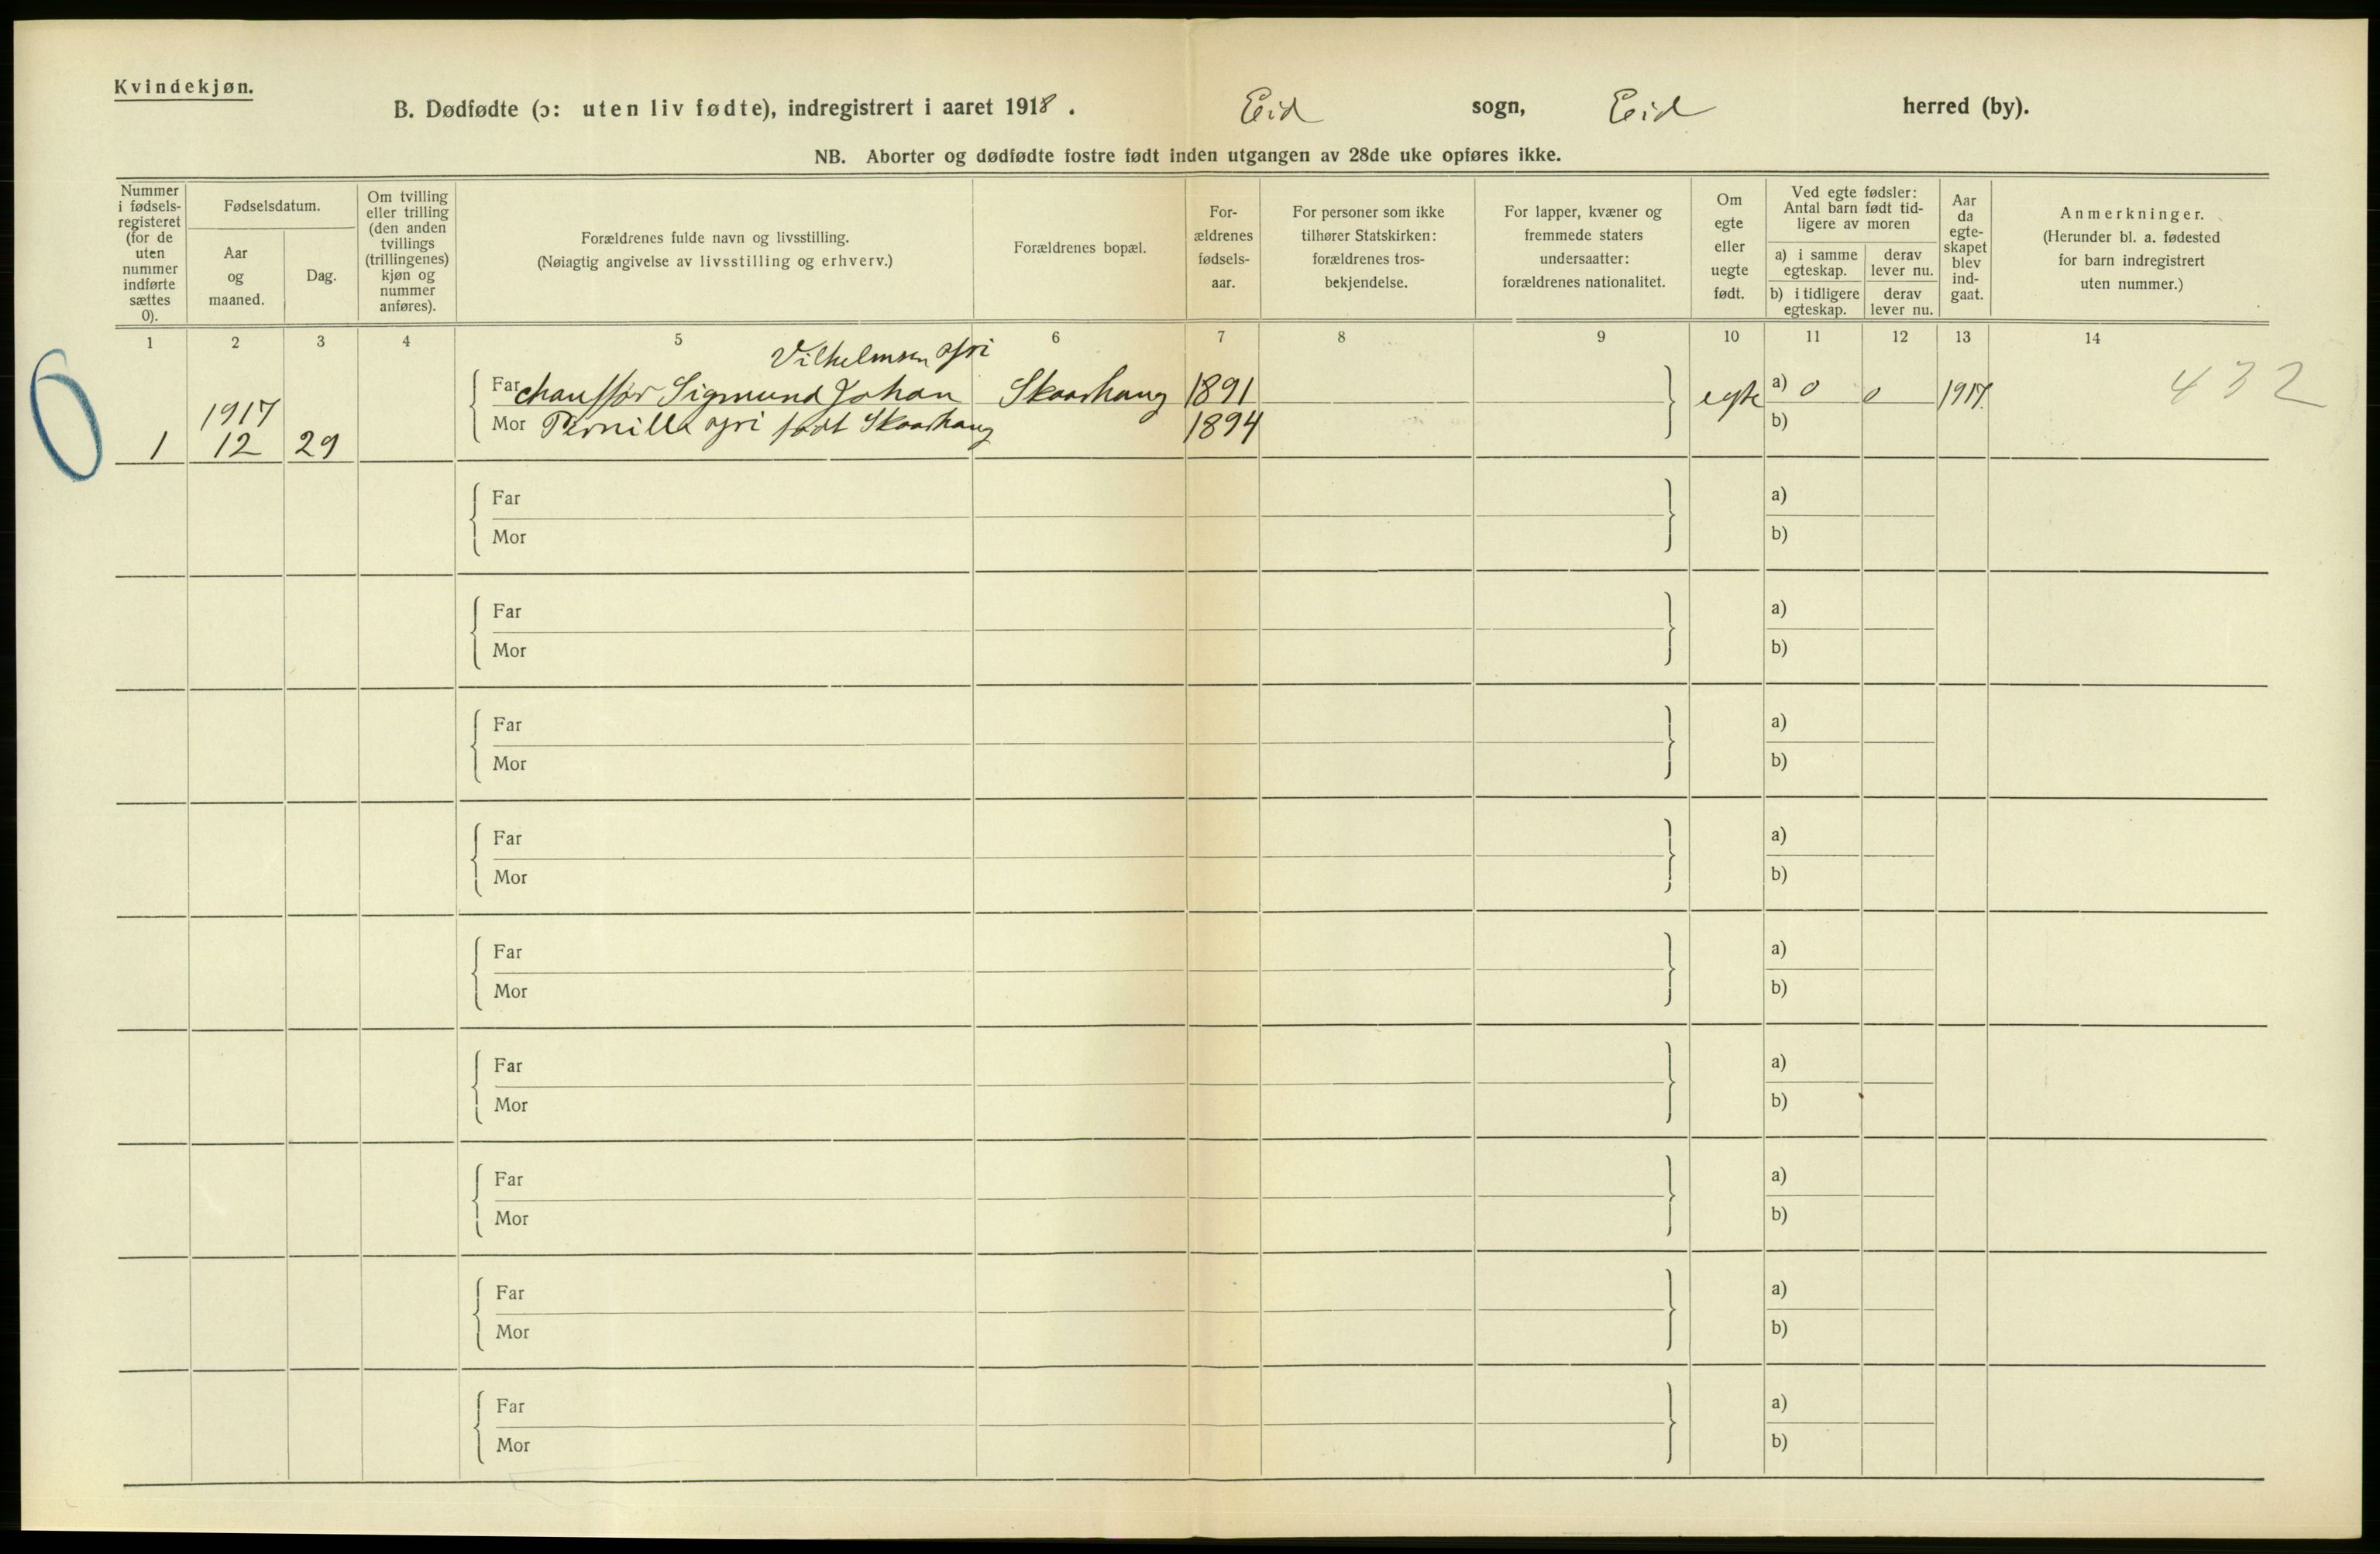 Kvindekjøn.
B. Dødfødte (ɔ: uten liv fødte), indregistrert i aaret 1918. Eid sogn, Eid herred (by).
NB. Aborter og dødfødte fostre født inden utgangen av 28de uke opføres ikke.
Nummer
i fødsels-
registeret
(for de
uten
nummer
indførte
sættes
0).
Fødselsdatum.
Aar
og
maaned.
Dag.
Om tvilling
eller trilling
(den anden
tvillings
(trillingenes)
kjøn og
nummer
anføres).
Forældrenes fulde navn og livsstilling.
(Nøiagtig angivelse av livsstilling og erhverv.)
Forældrenes bopæl.
For-
ældrenes
fødsels-
aar.
For personer som ikke
tilhører Statskirken:
forældrenes tros-
bekjendelse.
For lapper, kvæner og
fremmede staters
undersaatter:
forældrenes nationalitet.
Om
egte
eller
uegte
født.
Ved egte fødsler:
Antal barn født tid-
ligere av moren
a) i samme
egteskap.
derav
lever nu.
b) i tidligere
egteskap.
derav
lever nu.
Aar
da
egte-
skapet
blev
ind-
gaat.
Anmerkninger.
(Herunder bl. a. fødested
for barn indregistrert
uten nummer.)
1 2 3 4 5 6 7 8 9 10 11 12 13 14
Vilhelmsen
0 Far chauffør Sigmund Johan Skaarhaug 1891 egte a) 0 0 1917. 432
1917
Mor Pernille født Skaarhaug 1894 b)
1 12 29
Far a)
Mor b)
Far a)
Mor b)
Far a)
Mor b)
Far a)
Mor b)
Far a)
Mor b)
Far a)
Mor b)
Far a)
Mor b)
Far a)
Mor b)
Far a)
Mor b)